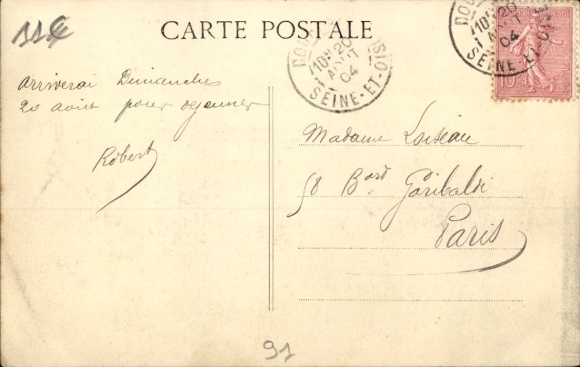 11€
CARTE POSTALE
DOU
10H20
AOUT
04
SEINE-ET-OISE
10H20
1
AOUT
04
SEINE-ET-OISE
10
arriverai Dimanche
20 aout pour dejeuner
Robert
Madame Loiseau
58 Bard Garibaldi
Paris
91